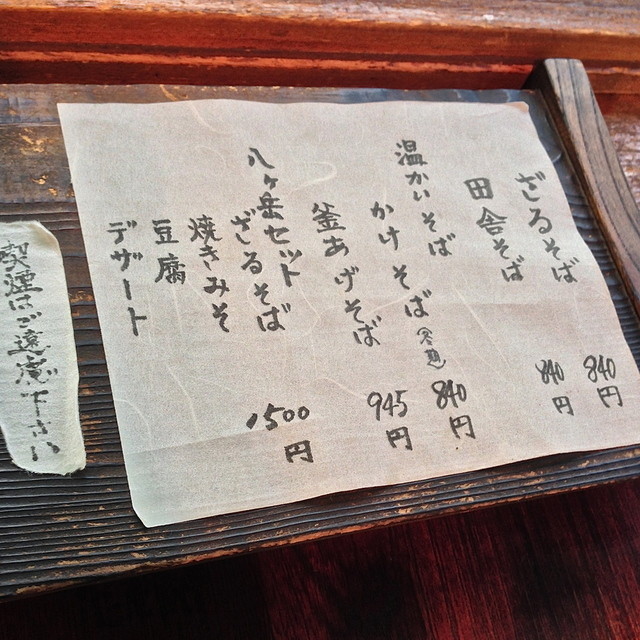 ざるそば 840円
田舎そば 840円
温かいそば
かけそば 840円
釜あげそば 945円
八ヶ岳セット 1500円
ざるそば
焼きみそ
豆腐
デザート
喫煙はご遠慮下さい